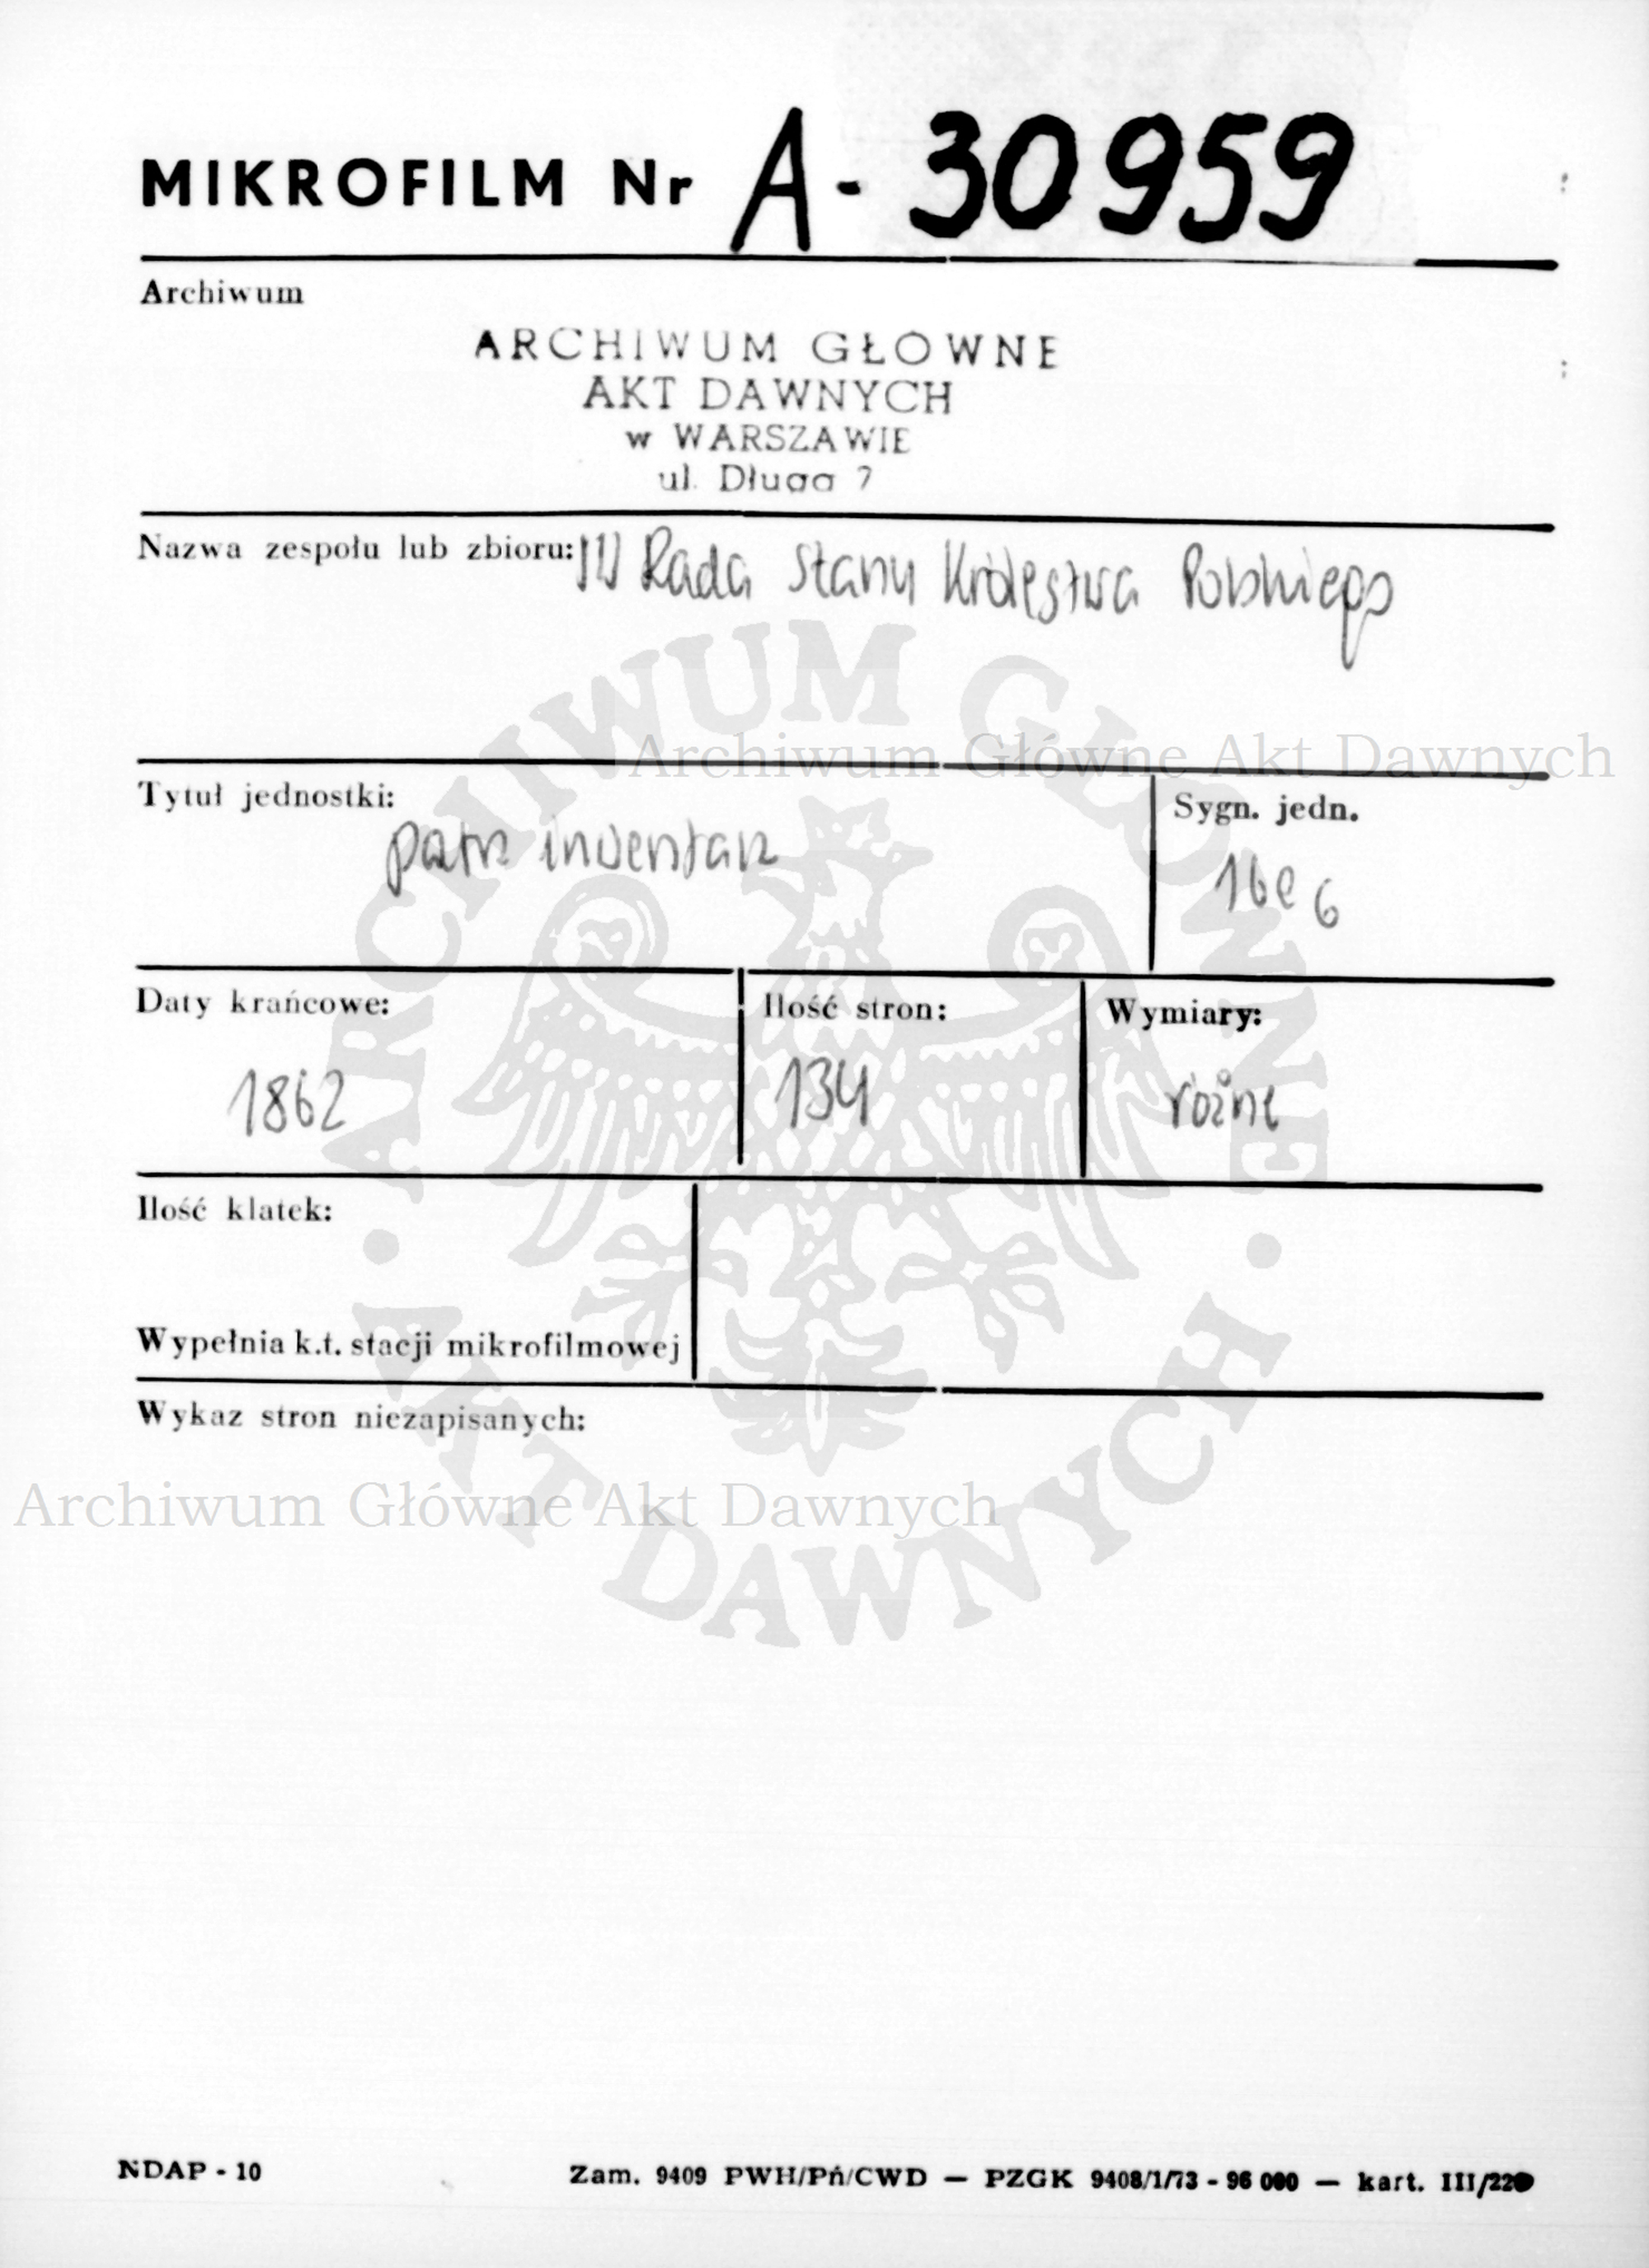 MIKROFILM Nr A-30959
Archiwum
ARCHIWUM GŁÓWNE
AKT DAWNYCH
w WARSZAWIE
ul. Długa 7
Nazwa zespołu lub zbioru: III Rada Stanu Królestwa Polskiego
Archiwum Główne Akt Dawnych
Tytuł jednostki:
patrz inwentarz
Sygn. jedn.
Daty krańcowe:
1862
Ilość stron:
134
Wymiary:
różne
Ilość klatek:
Wypełnia k.t. stacji mikrofilmowej
Wykaz stron niezapisanych:
Archiwum Główne Akt Dawnych
ARCHIWUM GŁÓWNE
AKT DAWNYCH
NDAP - 10
Zam. 9409 PWH/Pń/CWD — PZGK 9408/1/73 - 96 000 — kart. III/220